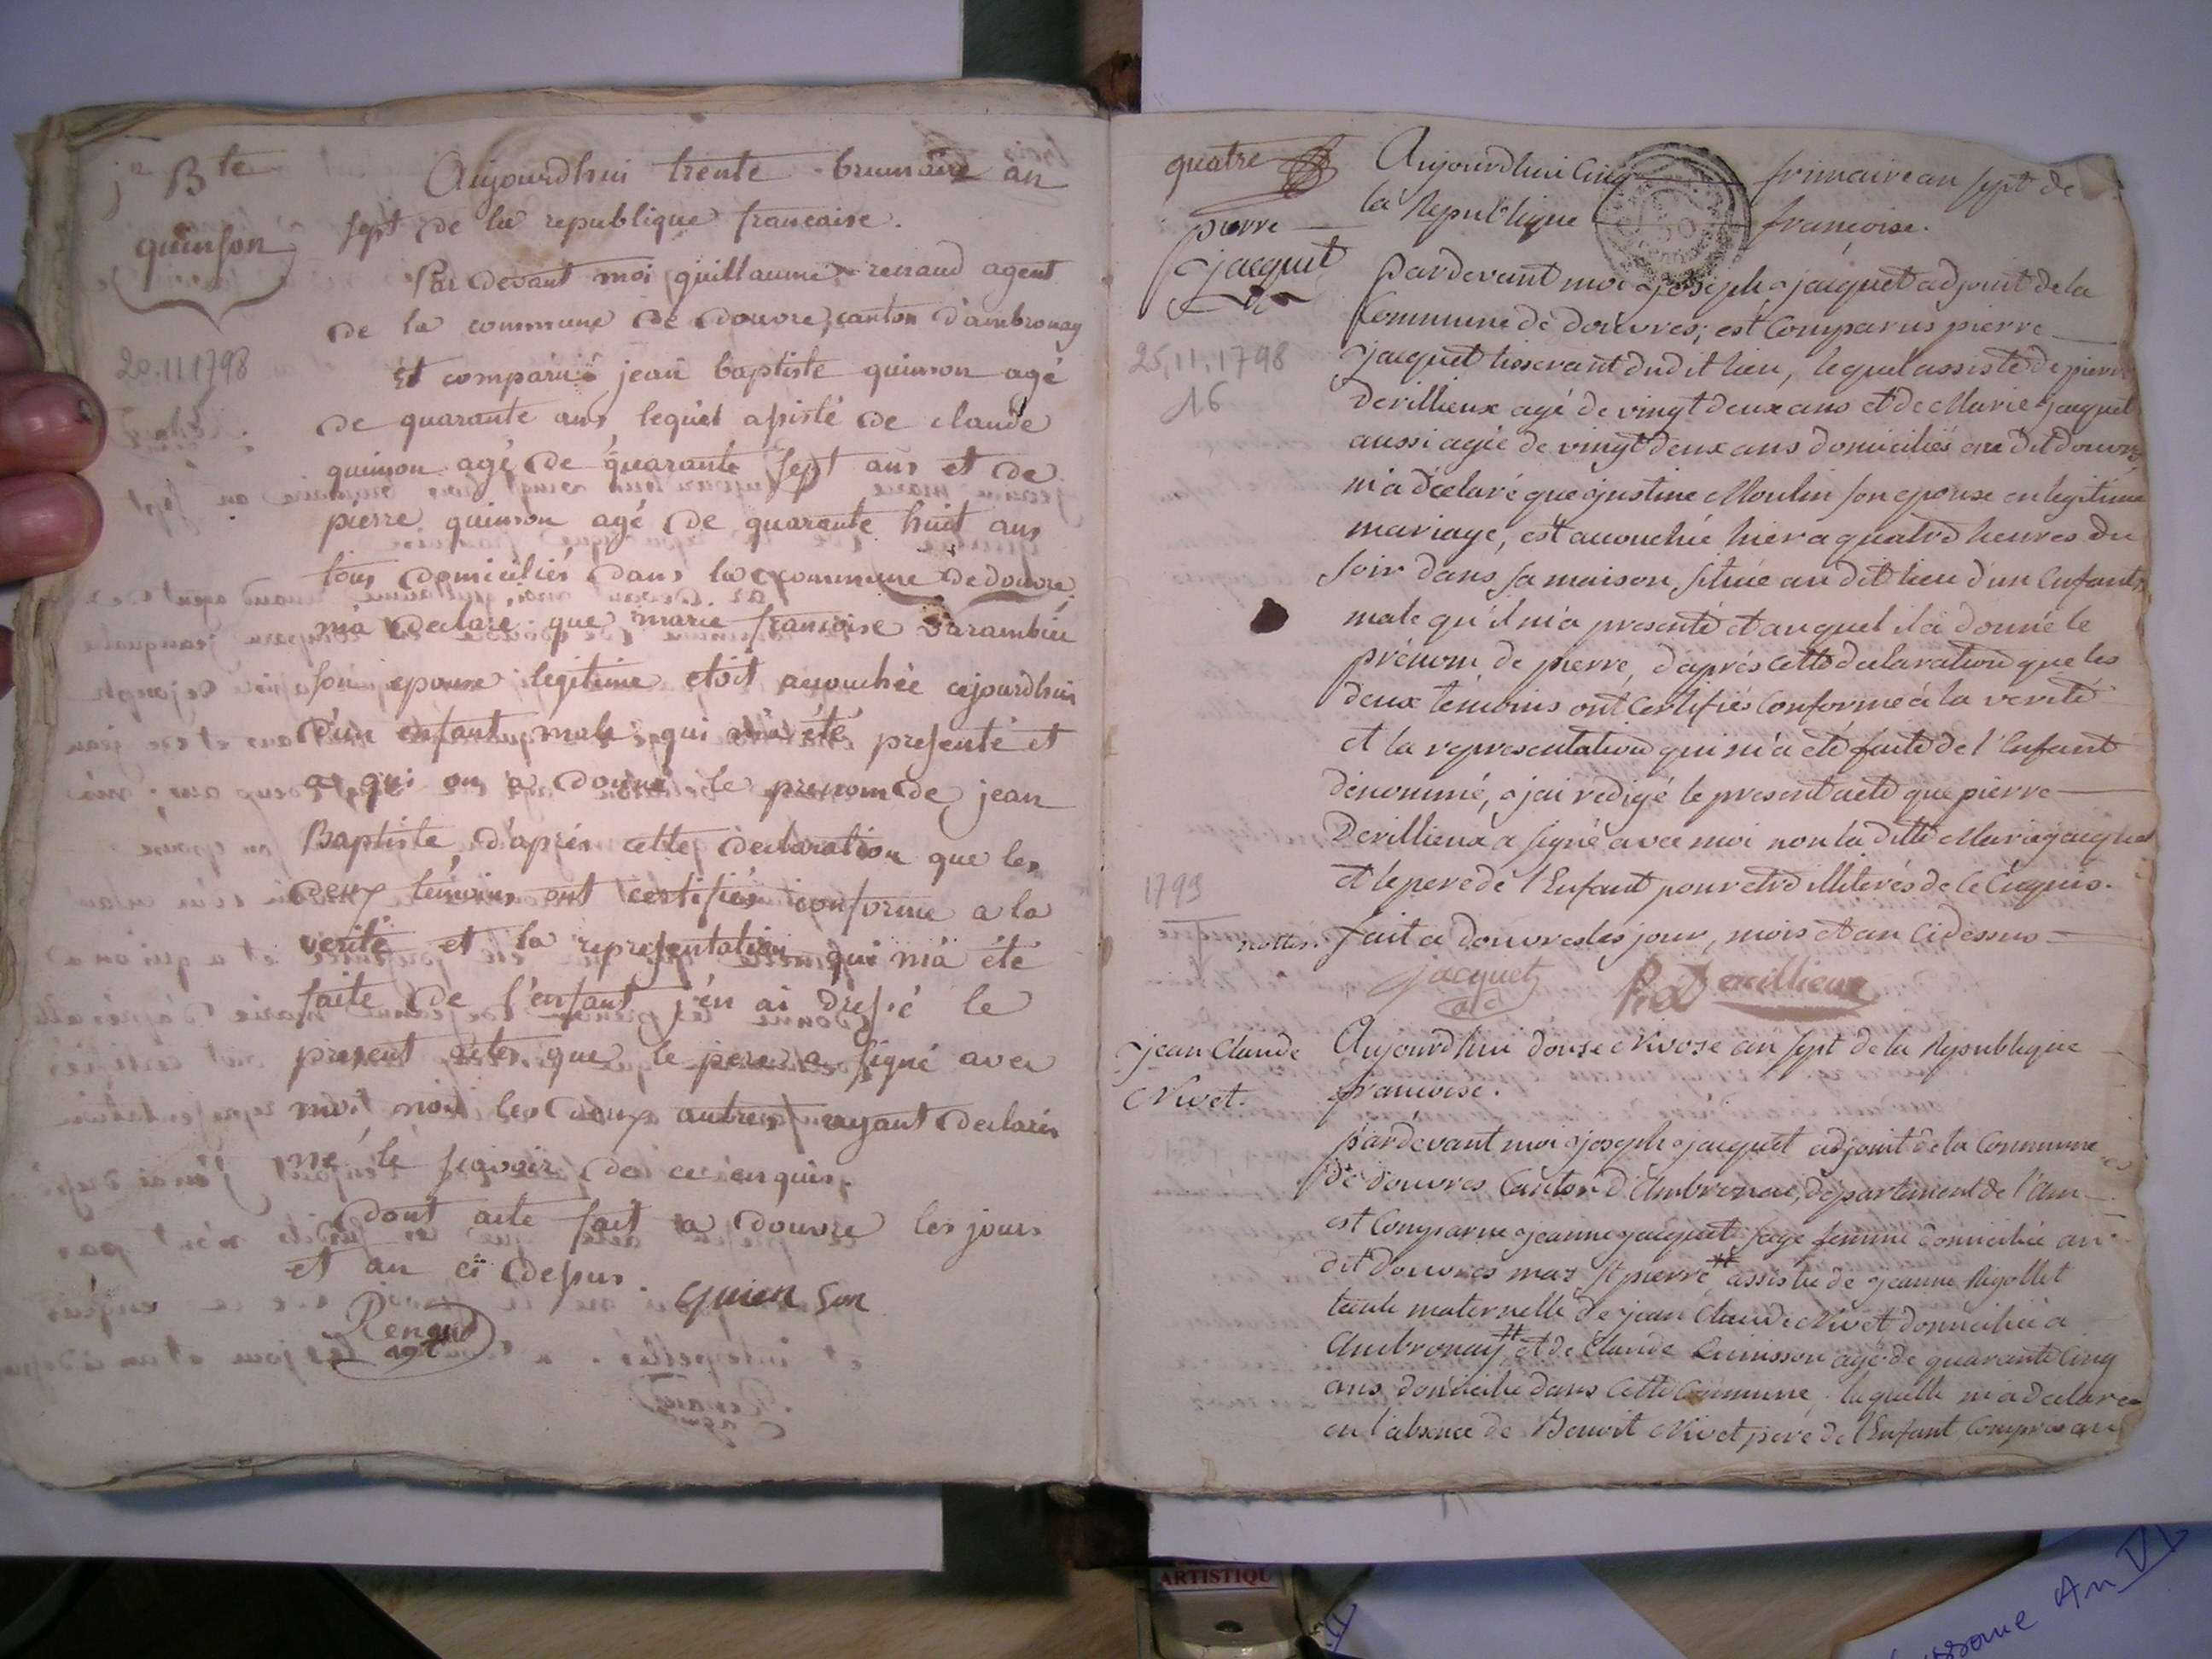 jn Bte
quinson
20.11 1798
Aujourdhui trente brumaire an
sept de la republique francaise.
Par devant moi guillaume renaud agent
de la commune de douvre, canton d'ambronay
Et comparu jean baptiste quinson agé
de quarante ans lequel assisté de claude
quinson agé de quarante sept ans et de
pierre quinson agé de quarante huit ans
tous domiciliés dans la commune de douvre,
m'a declaré que marie francoise Varambieu
son epouse legitime etoit acouchée cejourdhui
d'un enfant male qui m'a été presenté et
a qui on a donné le prenom de jean
Baptiste, d'aprés cette declaration que les
deux témoins ont certifiés conforme a la
verité et la representation qui m'a été
faite de l'enfant j'en ai dressé le
present acte que le pere a signé avec
moi, non les deux autres ayant declarés
ne le sçavoir de ce enquis.
dont acte fait a douvre les jours
et an ci dessus.
quienson
Renaud
agt
quatre
pierre
jacquet
25.11.1798
16
Aujourdhui Cinq frimaire an sept de
la Republique francoise.
pardevant moi joseph jacquet adjoint de la
Commune de douvres, est Comparus pierre
jacquet tisserant dudit lieu, lequel assisté de pierre
Devillieux agé de vingt deux ans et de Marie jacquet
aussi agée de vingt deux ans domiciliés au dit douvres
m'a déclaré que justine Moulin son epouse en legitime
mariage, est acouchée hier a quatre heures du
soir dans sa maison, située au dit lieu d'un Enfant
male qu'il m'a presenté et auquel il a donné le
prénom de pierre, d'aprés cette declaration que les
deux témoins ont Certifiés Conforme à la verité
et la representation qui m'a été faite de l'Enfant
dénommé, j'ai rédigé le present acte que pierre
Devillieux a signé avec moi non la ditte Marie jacquet
et le pere de l'Enfant pour etre illiterés de Ce Enquis.
1799
nottes.
fait a douvres les jour, mois et an Cidessus
jacquet
adj
P. Devillieux
jean Claude
Nivet.
Aujourdhui douze Nivose an sept de la Republique
francoise.
pardevant moi joseph jacquet adjoint de la Commune
de douvres Canton d'Ambronai, département de l'Ain
est Comparue jeanne jacquet sage femme domiciliée au
dit douvres mas St pierre assistée de jeanne Rigollet
tante maternelle de jean Claude Nivet domiciliée a
Ambronay et de Claude Quinson agé de quarante Cinq
ans domicilié dans Cette Commune, laquelle m'a déclaré
en l'absence de Benoit Nivet pere de l'Enfant Compris au
ARTISTIQU
An VI